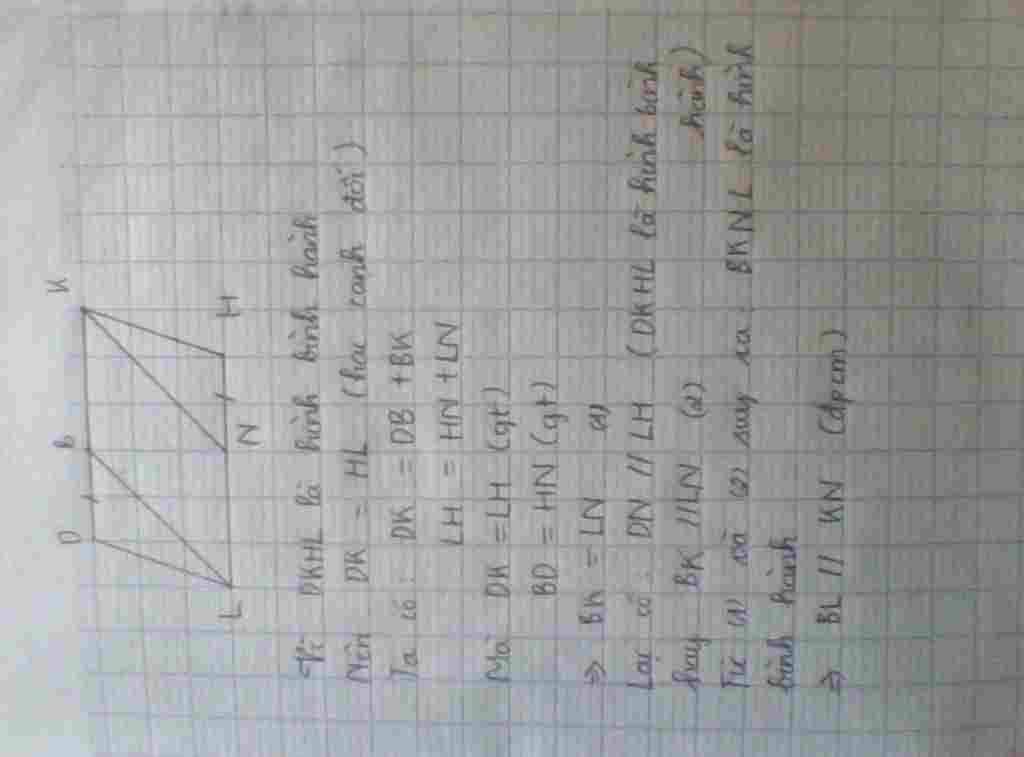 D B K
L N H
Vì DKHL là hình bình bình hành
Nên DK = HL (hai cạnh đối)
Ta có: DK = DB + BK
LH = HN + LN
Mà DK = LH (gt)
BD = HN (gt)
=> BK = LN (1)
Lại có: DN // LH (DKHL là hình bình
hành)
hay BK // LN (2)
Từ (1) và (2) suy ra BKNL là hình
bình hành
=> BL // KN (đpcm)